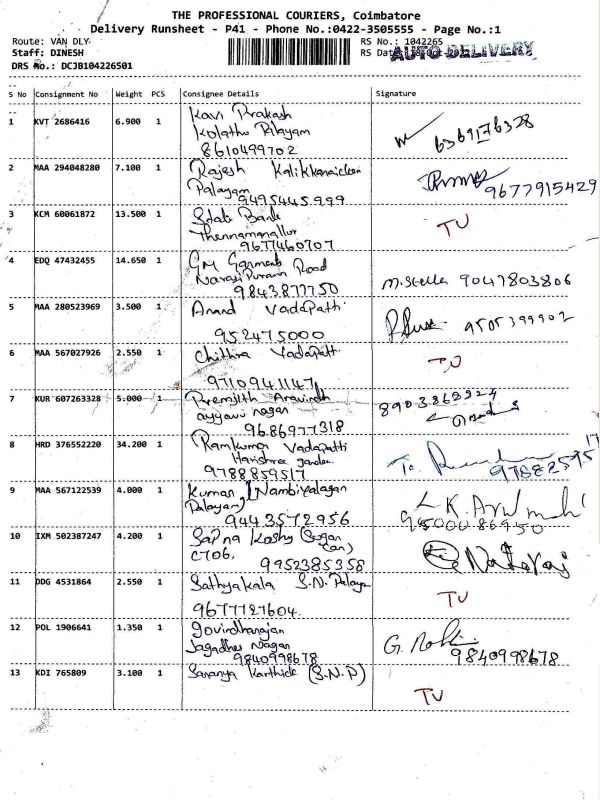 THE PROFESSIONAL COURIERS, Coimbatore
Delivery Runsheet - P41 - Phone No.:0422-3505555 - Page No.:1
Route: VAN DLY
RS No.: 1042265
Staff: DINESH
RS Date
AUTO DELIVERY
DRS No.: DCJB104226501
S No Consignment No Weight PCS Consignee Details Signature
1 KVT 2686416 6.900 1 Kavi Prakash
Kolathu Palayam
8610499702
6369176328
2 MAA 294048280 7.100 1 Rajesh Kalikkanaicken
Palayam
9495445999
9677915429
3 KCM 60061872 13.500 1 State Bank
Thennamanallur
9677460707
TU
4 EDQ 47432455 14.650 1 GM Garments
Narasi Puram Road
9843877750
M. Stella 9047803806
5 MAA 280523969 3.500 1 Anand Vadapatti
952475000
9505399902
6 MAA 567027926 2.550 1 Chithra Vadapatti
97109411471
TU
7 KUR 607263328 5.000 1 Premjith Aravindh
ayyavu nagar
9686977318
8903868924
8 HRD 376552220 34.200 1 Ramkumar Vadapatti
Harishree garden
9788859517
To.
9 MAA 567122539 4.000 1 Kuman (Nambiyalagan
Palayam)
9443572956
9500086950
10 IXM 502387247 4.200 1 Sapna Koshy (Sugar
C706, Can)
9952385358
Nataraj
11 DDG 4531864 2.550 1 Sathyakala S.N. Palayam
9677727604
TU
12 POL 1906641 1.350 1 Govindharajan
Jagadhes Nagar
9840998678
G.
9840998678
13 KDI 765809 3.100 1 Saranya Karthick (S.N.P)
TU